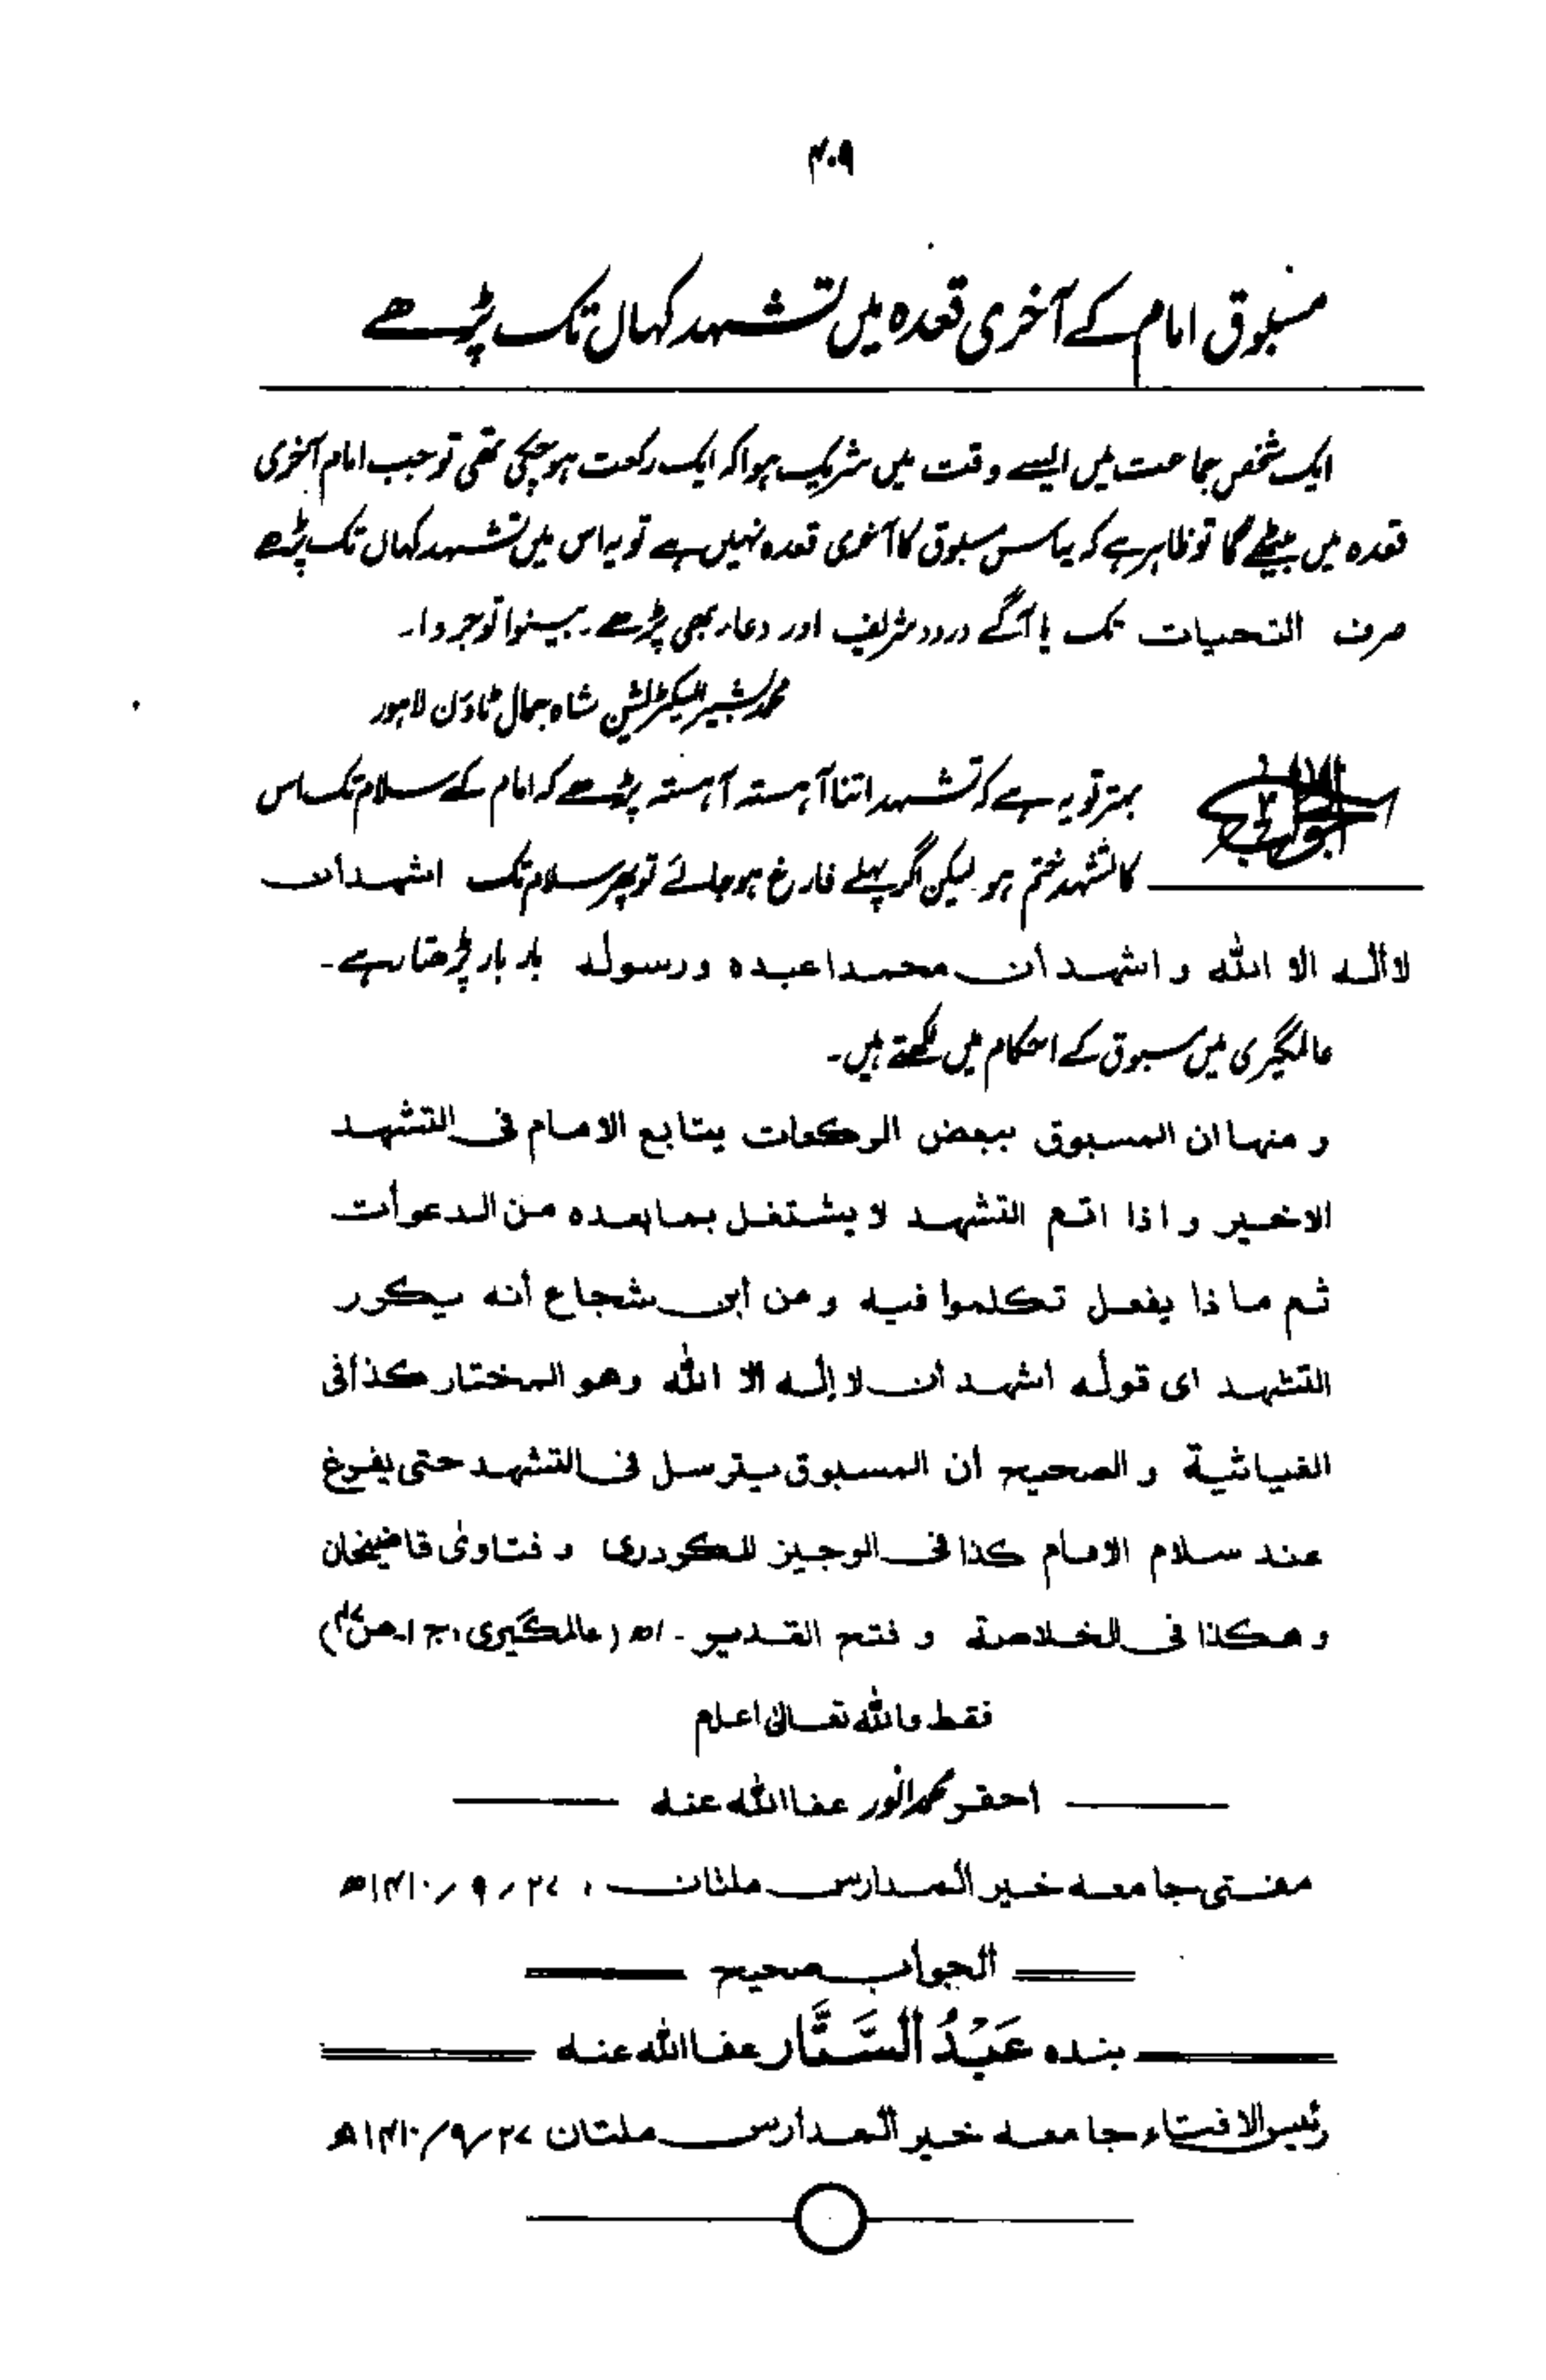 ۴۰۹
مسبوق امام کے آخری قعدہ میں تشہد کہاں تک پڑھے
ایک شخص جماعت میں ایسے وقت میں شریک ہوا کہ ایک رکعت ہو چکی تھی تو جب امام آخری
قعدہ میں بیٹھے گا تو ظاہر ہے کہ یہ اس مسبوق کا آخری قعدہ نہیں ہے تو یہ اس میں تشہد کہاں تک پڑھے
صرف التحیات تک یا آگے درود شریف اور دعاء بھی پڑھے۔ بینوا توجروا۔
محمد بشیر الیکٹریشن شاہ جمال ٹاؤن لاہور
الجواب بہتر تو یہ ہے کہ تشہد اتنا آہستہ آہستہ پڑھے کہ امام کے سلام تک اس
کا تشہد ختم ہو لیکن اگر پہلے فارغ ہو جائے تو پھر سلام تک اشهد ان
لا اله الا الله و اشهد ان محمدا عبده ورسوله بار بار پڑھتا رہے۔
عالمگیری میں مسبوق کے احکام میں لکھتے ہیں۔
و منها ان المسبوق ببعض الركعات يتابع الامام فى التشهد
الاخير و اذا اتم التشهد لا يشتغل بما بعده من الدعوات
ثم ماذا يفعل تكلموا فيه وعن أبى شجاع أنه يكرر
التشهد اى قوله اشهد ان لا إله الا الله وهو المختار كذا فى
الغياثية و الصحيح ان المسبوق يترسل فى التشهد حتى يفرغ
عند سلام الامام كذا فى الوجيز للكردرى و فتاوىٰ قاضيخان
و هكذا فى الخلاصة و فتح القدير۔ اھ (عالمگیری، ج۱۔ ص)
فقط والله تعالىٰ اعلم
احقر محمد انور عفا الله عنه
مفتی جامعه خیر المدارس ملتان ، ۲۷ / ۹ / ۱۴۱۰ھ
الجواب صحيح
بنده عَبْدُ السَّتَّار عفا الله عنه
رئیس الافتاء جامعه خیر المدارس ملتان ۲۷/۹/۱۴۱۰ھ